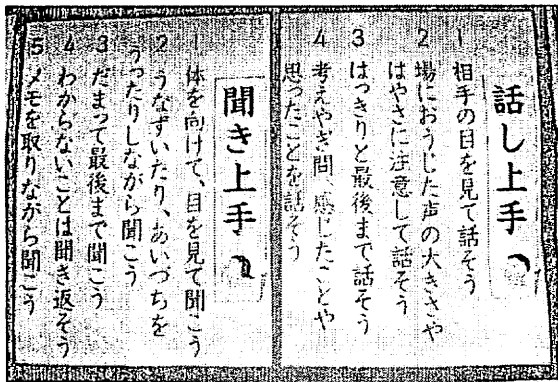 話し上手
1 相手の目を見て話そう
2 場におうじた声の大きさや
はやさに注意して話そう
3 はっきりと最後まで話そう
4 考えやぎ問、感じたことや
思ったことを話そう
聞き上手
1 体を向けて、目を見て聞こう
2 うなずいたり、あいづちを
うったりしながら聞こう
3 だまって最後まで聞こう
4 わからないことは聞き返そう
5 メモを取りながら聞こう